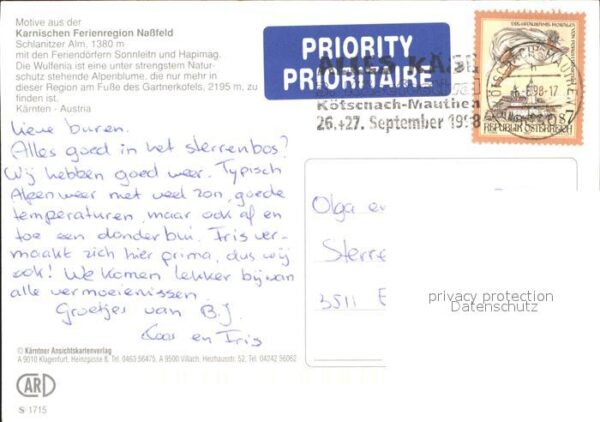 Motive aus der
Karnischen Ferienregion Naßfeld
Schlanitzer Alm, 1380 m
mit den Feriendörfern Sonnleitn und Hapimag.
Die Wulfenia ist eine unter strengstem Natur-
schutz stehende Alpenblume, die nur mehr in
dieser Region am Fuße des Gartnerkofels, 2195 m, zu
finden ist.
Kärnten - Austria
PRIORITY
PRIORITAIRE
ALLES KÄSE
Kötschach-Mauthen
26.+27. September 1998
REPUBLIK ÖSTERREICH
Lieve buren.
Alles goed in het sterrenbos?
Wij hebben goed weer. Typisch
Alpenweer met veel zon, goede
temperaturen, maar ook af en
toe een donderbui. Iris ver-
maakt zich hier prima, dus wij
ook! We komen lekker bij van
alle vermoeienissen.
Groetjes van B.J.
Koos en Iris
Olga en
Sterre
3511
privacy protection
Datenschutz
© Kärntner Ansichtskartenverlag
A 9010 Klagenfurt, Heinzgasse 8, Tel. 0463 56475, A 9500 Villach, Tel. 04242 56062
CARD
S 1715